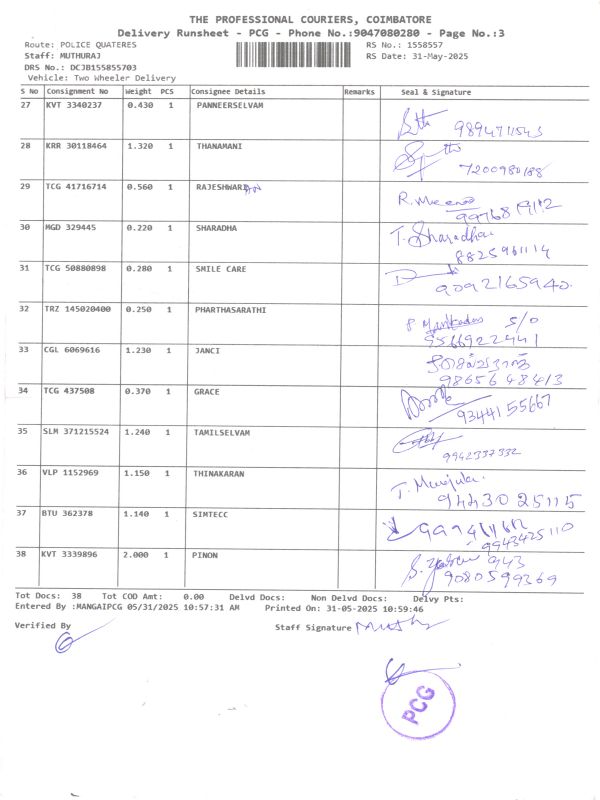 THE PROFESSIONAL COURIERS, COIMBATORE
Delivery Runsheet - PCG - Phone No.:9047080280 - Page No.:3
Route: POLICE QUATERES RS No.: 1558557
Staff: MUTHURAJ RS Date: 31-May-2025
DRS No.: DCJB155855703
Vehicle: Two Wheeler Delivery
S No Consignment No Weight PCS Consignee Details Remarks Seal & Signature
27 KVT 3340237 0.430 1 PANNEERSELVAM
9894711543
28 KRR 30118464 1.320 1 THANAMANI
7200980188
29 TCG 41716714 0.560 1 RAJESHWARI
R. Meena
30 MGD 329445 0.220 1 SHARADHA
T. Sharadha
8825961114
31 TCG 50880898 0.280 1 SMILE CARE
9092165940
32 TRZ 145020400 0.250 1 PHARTHASARATHI
S/O
9566922441
33 CGL 6069616 1.230 1 JANCI
9865648413
34 TCG 437508 0.370 1 GRACE
9344155667
35 SLM 371215524 1.240 1 TAMILSELVAM
9942337332
36 VLP 1152969 1.150 1 THINAKARAN
T. Manjula
9443025115
37 BTU 362378 1.140 1 SIMTECC
9943425110
38 KVT 3339896 2.000 1 PINON
943
9080599369
Tot Docs: 38 Tot COD Amt: 0.00 Delvd Docs: Non Delvd Docs: Delvy Pts:
Entered By :MANGAIPCG 05/31/2025 10:57:31 AM Printed On: 31-05-2025 10:59:46
Verified By Staff Signature
PCG